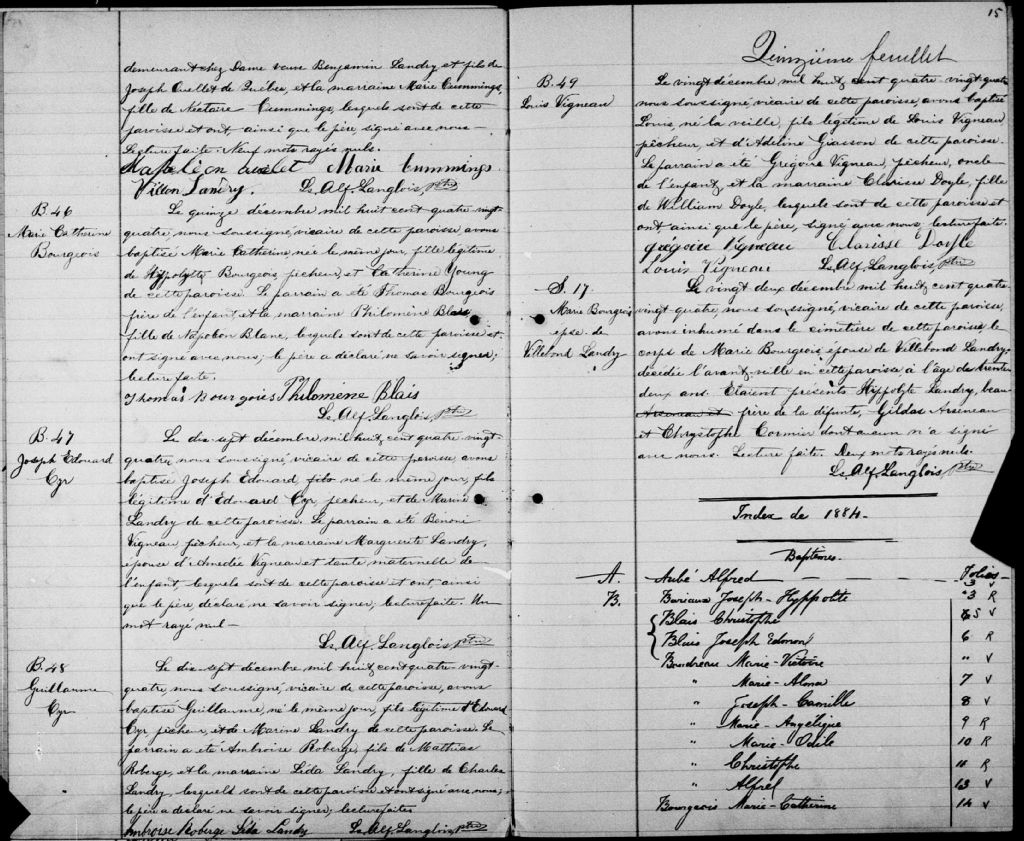 demeurant chez Dame veuve Benjamin Landry, et fils de
Joseph Ouellet de Québec, et la marraine Marie Cummings,
fille de Nectaire Cummings, lesquels sont de cette
paroisse et ont ainsi que le père, signé avec nous —
Lecture faite. Neuf mots rayés nuls.
Napoléon ouelet Marie Cummings
Villon Landry. Ls. Alf. Langlois, ptre
B. 46
Marie Catherine
Bourgeois
Le quinze décembre mil huit cent quatre-vingt-
quatre, nous soussigné, vicaire de cette paroisse, avons
baptisé Marie Catherine, née le même jour, fille légitime
de Hyppolyte Bourgeois pêcheur, et Catherine Young
de cette paroisse. Le parrain a été Thomas Bourgeois
frère de l'enfant, et la marraine Philomène Blais
fille de Napoléon Blanc, lesquels sont de cette paroisse et
ont signé avec nous; le père a déclaré ne savoir signer;
lecture faite.
Thomas Bourgois Philomène Blais
Ls. Alf. Langlois, ptre
B. 47
Joseph Edouard
Cyr
Le dix-sept décembre, mil huit cent quatre-vingt-
quatre, nous soussigné, vicaire de cette paroisse, avons
baptisé Joseph Edouard, né le même jour, fils
légitime d'Edouard Cyr, pêcheur, et de Marine
Landry de cette paroisse. Le parrain a été Benoni
Vigneau pêcheur, et la marraine Marguerite Landry,
épouse d'Amédée Vigneau et tante maternelle de
l'enfant, lesquels sont de cette paroisse et ont ainsi
que le père, déclaré ne savoir signer; lecture faite. Un
mot rayé nul —
Ls. Alf. Langlois, ptre
B. 48
Guillaume
Cyr
Le dix-sept décembre, mil huit cent quatre-vingt-
quatre, nous soussigné, vicaire de cette paroisse, avons
baptisé Guillaume, né le même jour, fils légitime d'Edouard
Cyr pêcheur, et de Marine Landry de cette paroisse. Le
parrain a été Ambroise Roberge, fils de Mathias
Roberge, et la marraine Léda Landry, fille de Charles
Landry, lesquels sont de cette paroisse et ont signé avec nous;
le père a déclaré ne savoir signer; lecture faite
Ambroise Roberge Léda Landry Ls. Alf. Langlois, ptre
15
Quinzième feuillet
B. 49
Louis Vigneau
Le vingt décembre mil huit cent quatre-vingt quatre
nous soussigné, vicaire de cette paroisse, avons baptisé
Louis, né la veille, fils légitime de Louis Vigneau
pêcheur, et d'Adeline Giasson de cette paroisse.
Le parrain a été Grégoire Vigneau, pêcheur, oncle
de l'enfant, et la marraine Clarisse Doyle, fille
de William Doyle, lesquels sont de cette paroisse et
ont ainsi que le père, signé avec nous, lecture faite.
grégoire Vigneau Clarisse Doyle
Louis Vigneau Ls. Alf. Langlois, ptre
S. 17.
Marie Bourgeois
epse. de
Villebond Landry
Le vingt deux décembre mil huit cent quatre-
vingt quatre, nous soussigné, vicaire de cette paroisse,
avons inhumé dans le cimetière de cette paroisse, le
corps de Marie Bourgeois épouse de Villebond Landry,
décédée l'avant-veille en cette paroisse, à l'âge de trente
deux ans. Etaient présents Hippolyte Landry, beau-
frère de la défunte, Gildas Arseneau
et Chrystophe Cormier dont aucun n'a signé
avec nous. Lecture faite. Deux mots rayés nuls.
Ls. Alf. Langlois ptre
Index de 1884.
Baptêmes.
Folios
A. Aubé Alfred — 3 V
B. Bariaux Joseph-Hyppolite 3 R
Blais Christophe 5 V
Blais Joseph Edmon 6 R
Boudreau Marie-Victoire " V
" Marie-Alma 7 V
" Joseph-Camille 8 V
" Marie-Angélique 9 R
" Marie-Odile 10 R
" Christophe 11 R
" Alfred 13 V
Bourgeois Marie-Catherine 14 V